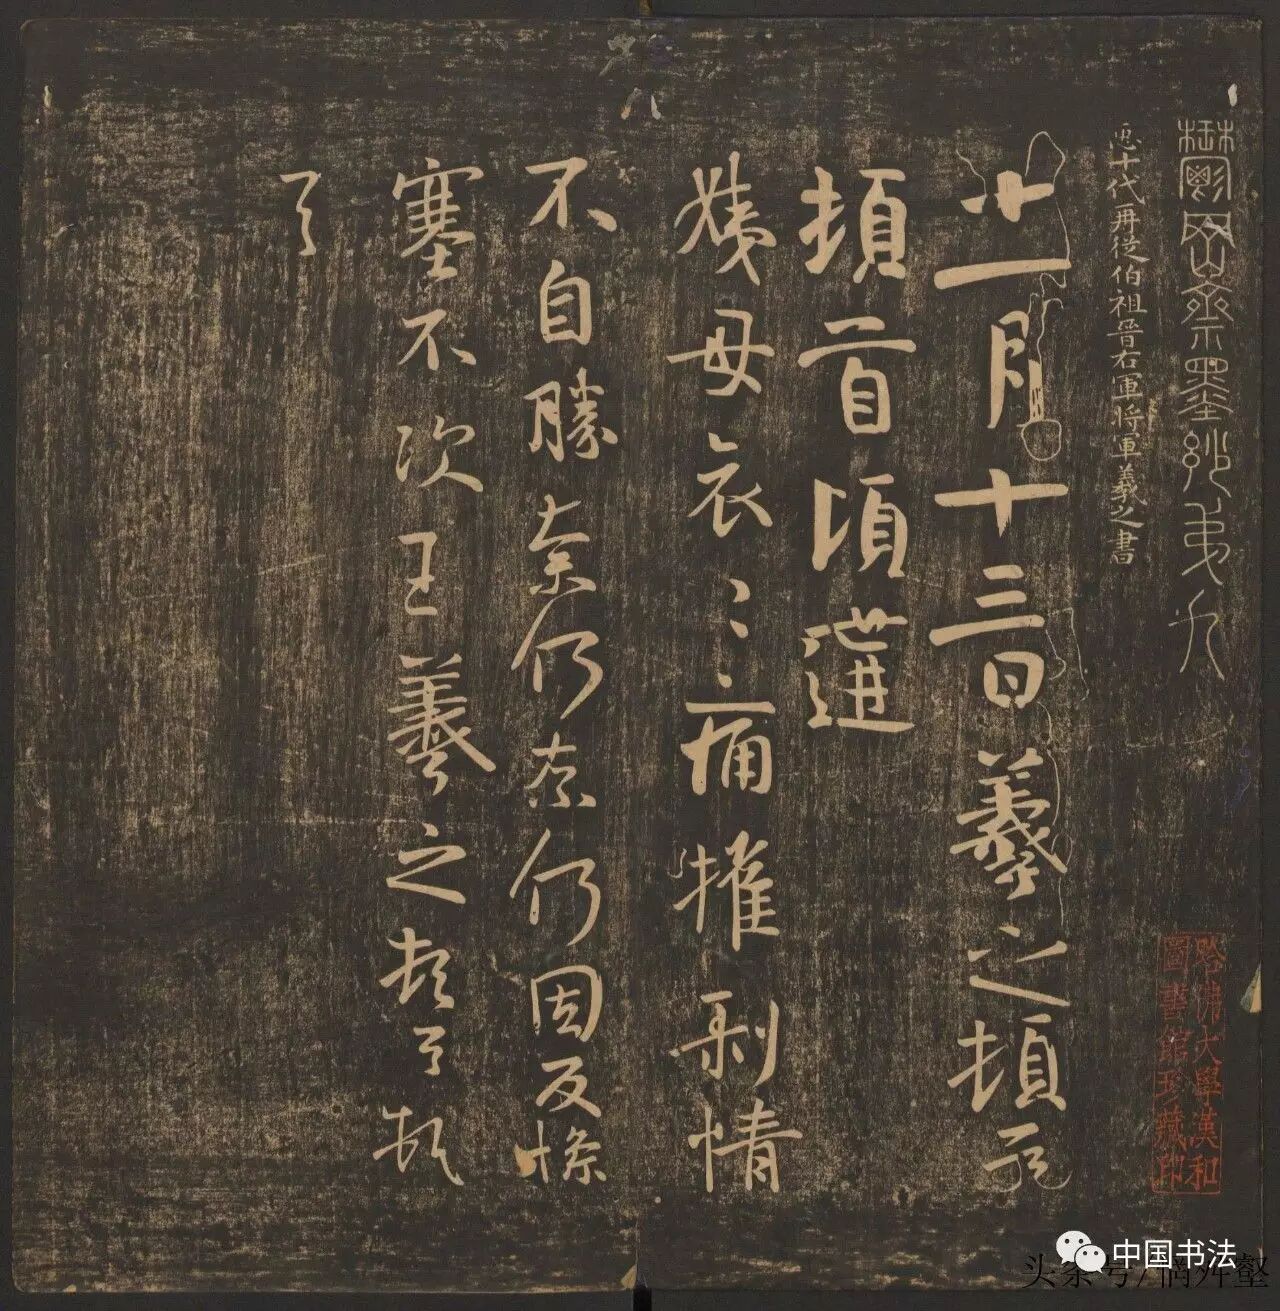 鬱岡齋墨妙弟九
臣十代再從伯祖晉右軍將軍羲之書
十一月十三日羲之頓首
頓首頃遘
姨母哀〻痛摧剝情
不自勝奈何奈何因反慘
塞不次王羲之頓首頓
首
哈佛大學漢和
圖書館珍藏印
中国书法
头条号/